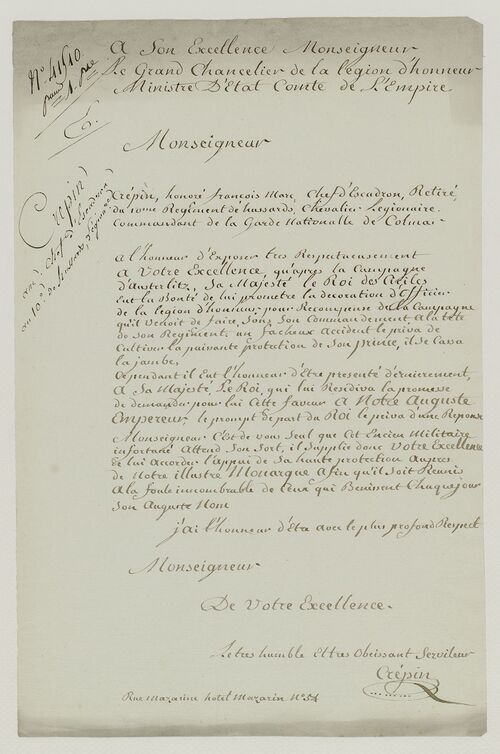 A Son Excellence Monseigneur
Le Grand Chancelier de la légion d'honneur
Ministre D'Etat Comte de L'Empire.
N° 41510.
Monseigneur
Crépin
chef d'Escadron
au 10e de hussards, Légionnaire
Crépin, honoré françois Marc, Chef d'Escadron, Retiré,
du 10me Regiment de hussards, Chevalier Légionaire.
Commandant de la Garde Nationalle de Colmar
a l'honneur d'Exposer tres Respectueusement
a Votre Excellence, qu'après la Campagne
d'Austerlitz, Sa Majesté le Roi des
Eut la Bonté de lui prometre la decoration d'Officier
de la legion d'honneur, pour Recompense de la Campagne
qu'il Venoit de faire, Sous Son Commandement a la tête
de son Regiment, un facheux Accident le priva de
Cultiver la puissante protection de Son prince, il se Cassa
la jambe,
Cependant il Eut l'honneur d'Etre presenté dernierement,
A Sa Majesté Le Roi, qui lui Residiva la promesse
de demander pour lui Cette faveur A Notre Auguste
Empereur, le prompt depart du Roi le priva d'une Reponse
Monseigneur C'Est de vous Seul que Cet Encien Militaire
infortuné Attend Son Sort, il Supplie donc Votre Excellence
de lui Accorder l'appui de Sa haute protection Aupres
de Notre illustre Monarque Afin qu'il Soit Reunis
A la foule innombrable de Ceux qui Benissent Chaque jour
Son Auguste Nom
j'ai l'honneur d'Etre avec le plus profond Respect
Monseigneur
De Votre Excellence.
Le tres humble Et tres Obeissant Serviteur
Crépin
Rue Mazarine hotel Mazarin N° 54